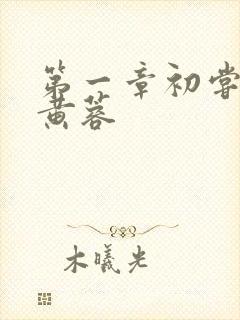 第一章初尝
黄蓉
木曦光